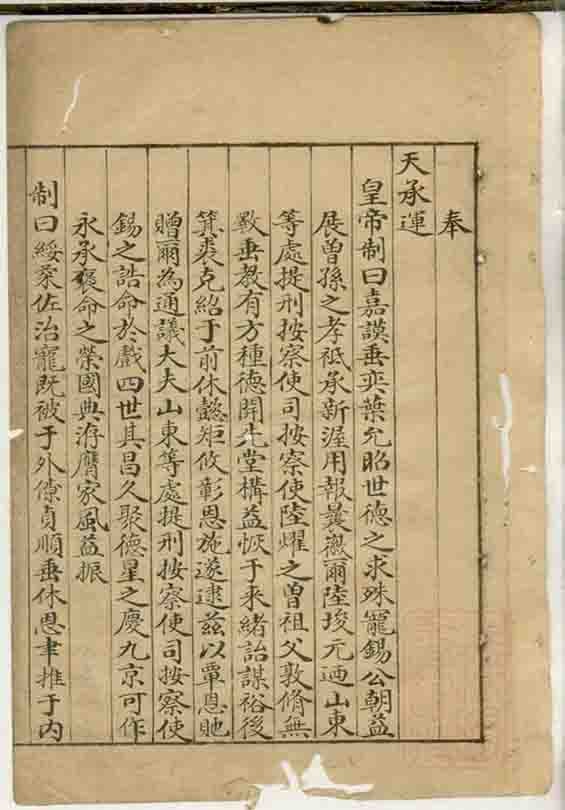 奉
天承運
皇帝制曰嘉謨垂奕葉允昭世德之求殊寵錫公朝益
展曾孫之孝祗承新渥用報曩徽爾陸埈元迺山東
等處提刑按察使司按察使陸燿之曾祖父敦脩無
斁垂教有方種德開先堂構益恢于来緒詒謀裕後
箕裘克紹于前休懿矩攸彰恩施遂逮茲以覃恩貤
贈爾為通議大夫山東等處提刑按察使司按察使
錫之誥命於戲四世其昌久聚德星之慶九京可作
永承褒命之榮國典洊膺家風益振
制曰綏猷佐治寵既被于外僚貞順垂休恩聿推于内